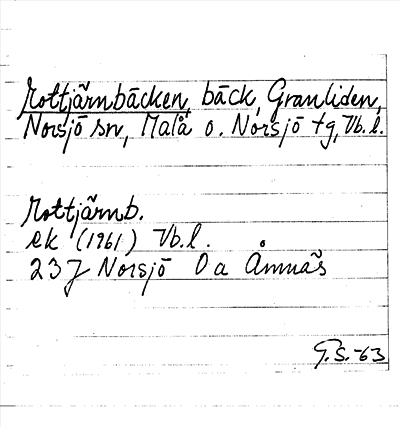 Rottjärnbäcken, bäck, Granliden,
Norsjö sn, Malå o. Norsjö tg, Vb.l.
Rottjärnb.
ek (1961) Vb.l.
23J Norsjö 0a Åmnäs
G.S.-63